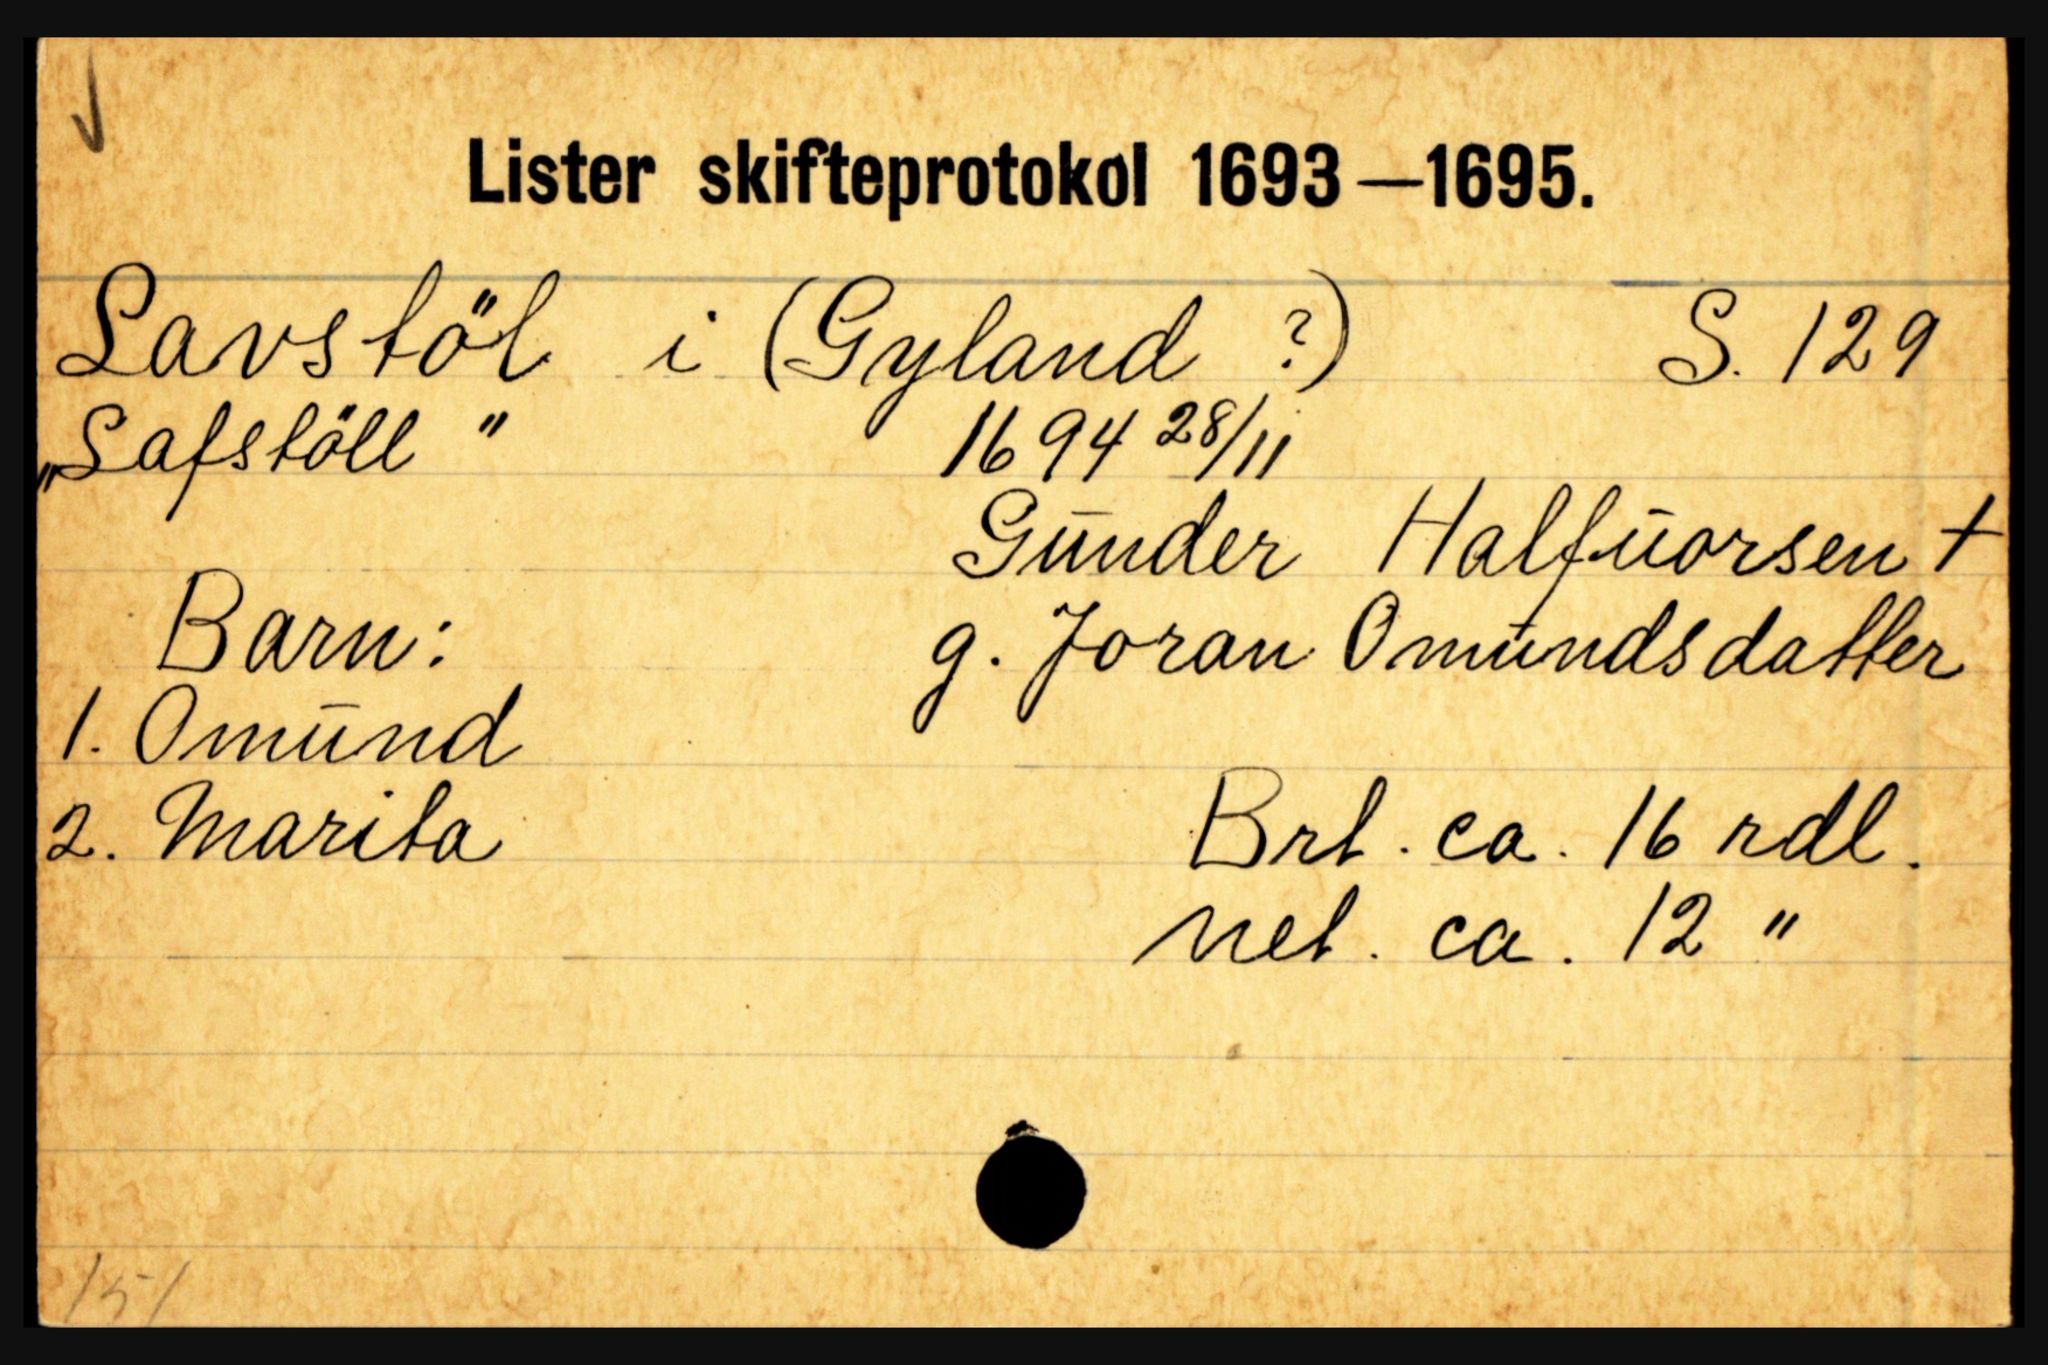 Lister skifteprotokol 1693—1695.
Lavstöl i (Gyland ?) S. 129
„Lafstöll " 1694 28/11
Gūnder Halfūorsen +
Barn: g. Joran Omūndsdatter
1. Omūnd
2. Marita Brt. ca. 16 rdl.
net. ca. 12 "
151